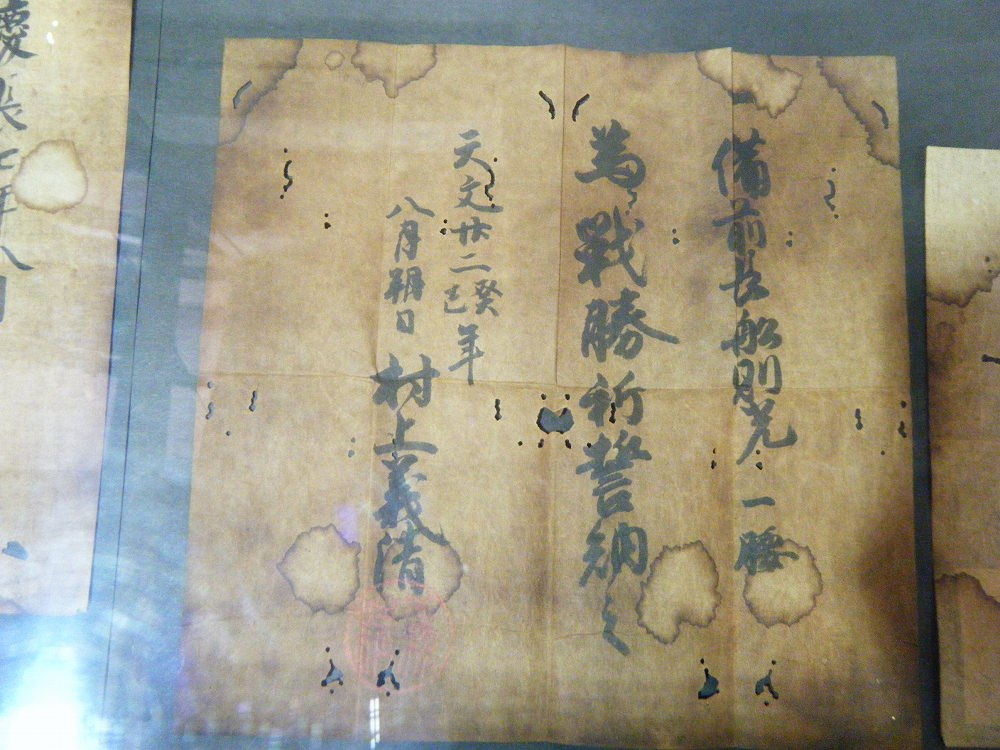 一備前長船則光 一腰
為戰勝祈誓納之
天文廿二癸巳年
八月朔日 村上義清
慶長七年八月